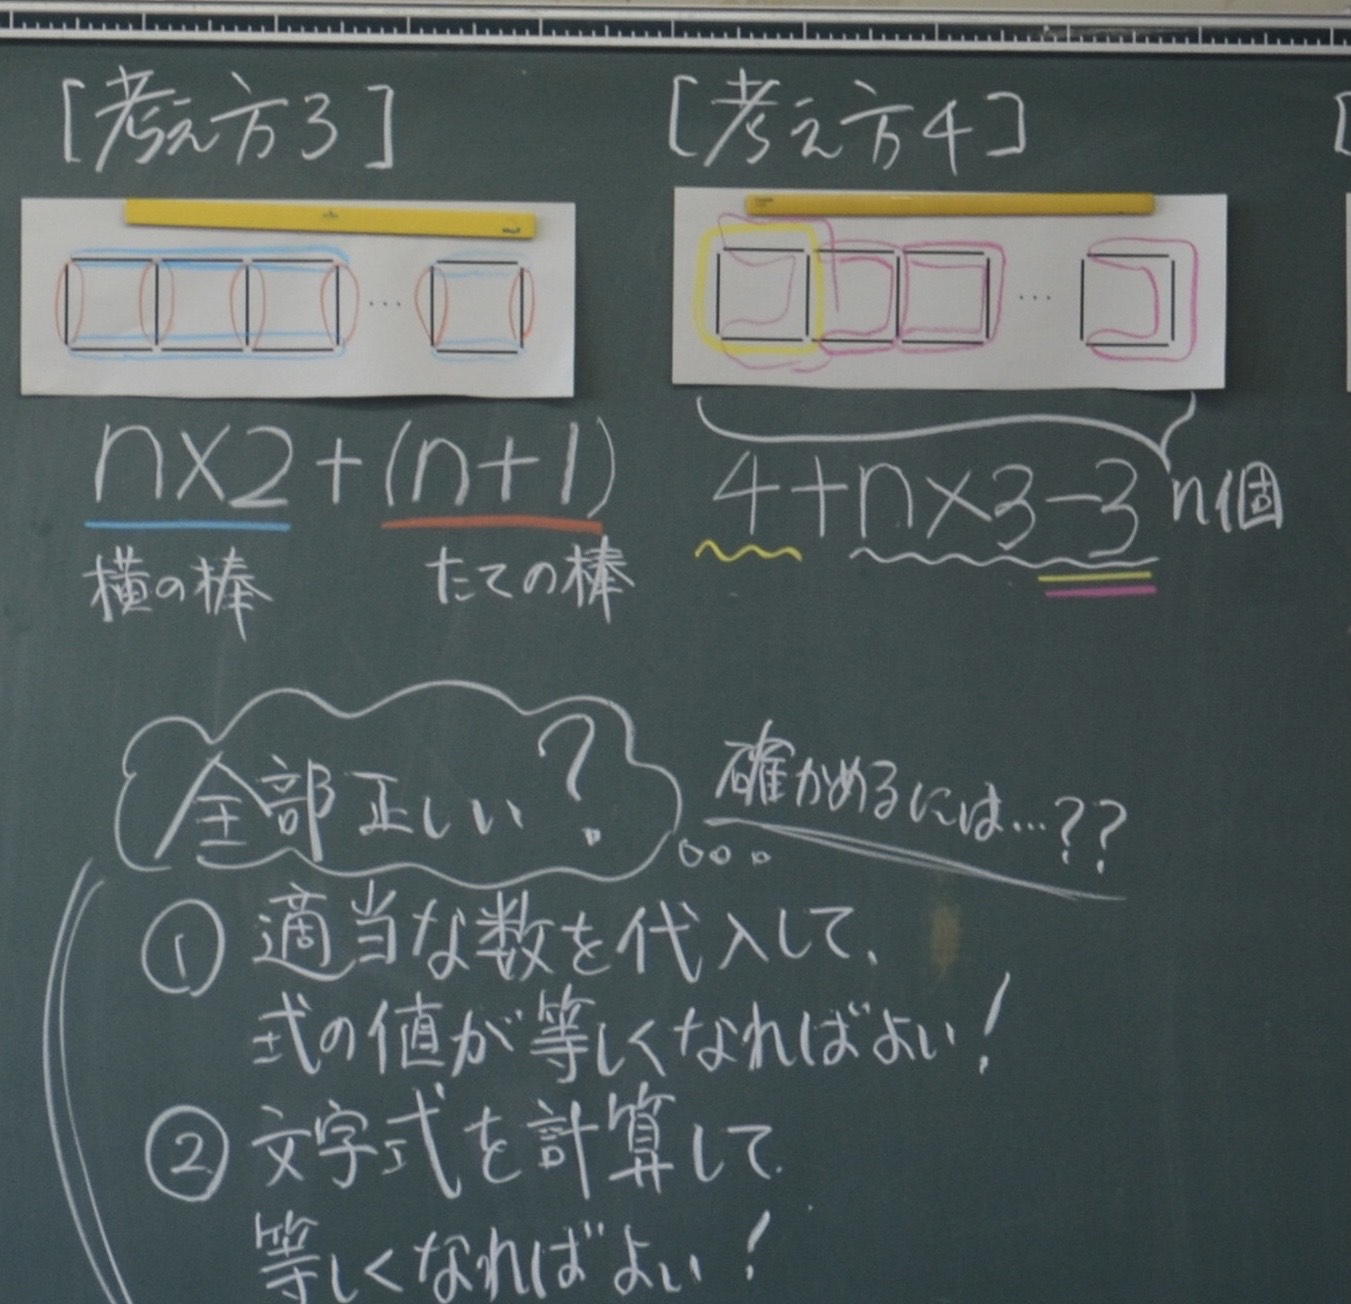 [考え方3]
n×2+(n+1)
横の棒 たての棒
[考え方4]
4+n×3-3 n個
全部正しい?
確かめるには...??
① 適当な数を代入して、
式の値が等しくなればよい!
② 文字式を計算して
等しくなればよい!